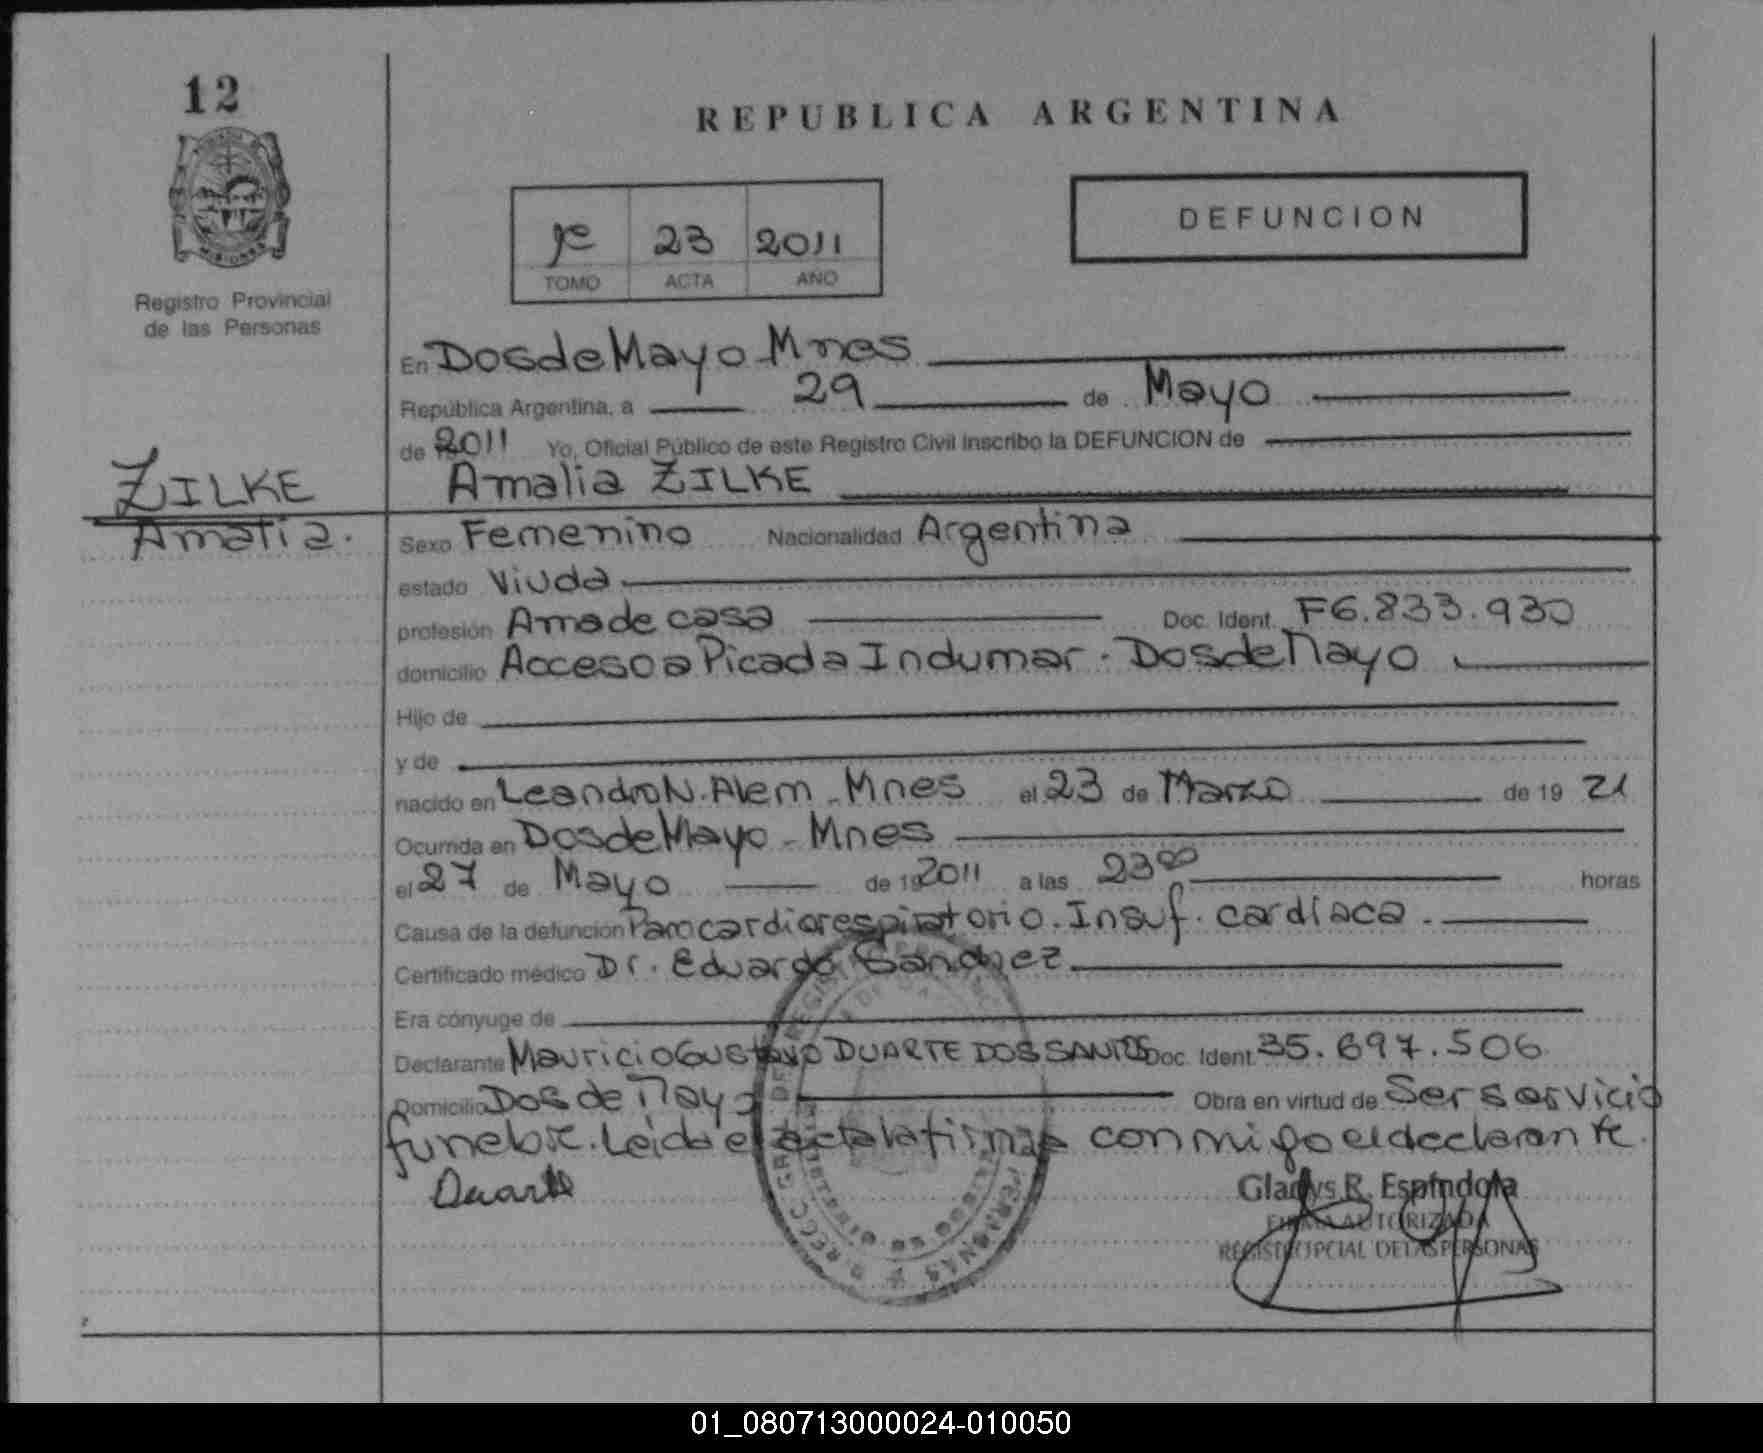 12
REPUBLICA ARGENTINA
1º 23 2011
TOMO ACTA AÑO
DEFUNCION
Registro Provincial
de las Personas
En Dos de Mayo Mnes
República Argentina, a 29 de Mayo
de 2011 Yo, Oficial Público de este Registro Civil inscribo la DEFUNCION de
ZILKE
Amalia ZILKE
Amalia.
Sexo Femenino Nacionalidad Argentina
estado Viuda
profesión Ama de casa Doc. Ident. F6.833.930
domicilio Acceso a Picada Indumar - Dos de Mayo
Hijo de
y de
nacido en Leandro N. Alem - Mnes el 23 de Marzo de 19 21
Ocurrida en Dos de Mayo - Mnes
el 27 de Mayo de 19 2011 a las 23 00 horas
Causa de la defunción Paro cardiorespiratorio. Insuf. cardíaca.
Certificado médico Dr. Eduardo Sanchez
Era cónyuge de
Declarante Mauricio Gustavo DUARTE DOS SANTOS Doc. Ident. 35.697.506
Domicilio Dos de Mayo Obra en virtud de Ser servicio
funebre. Leida el acta la firma conmigo el declarante.
Duarte
Gladys R. Espíndola
FIRMA AUTORIZADA
REGISTRO PCIAL DE LAS PERSONAS
01_080713000024-010050